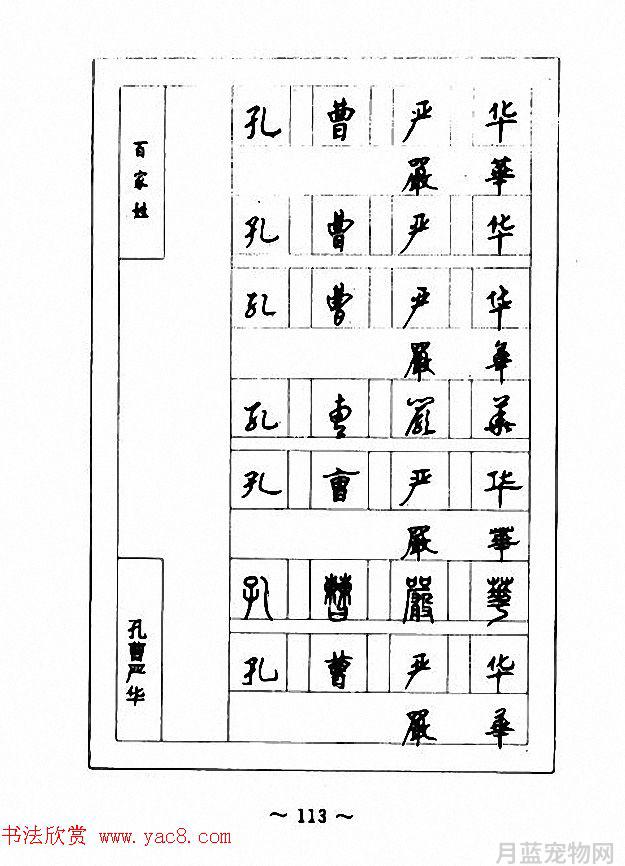 百家姓
孔 曹 严 华
嚴 華
孔 曹 严 华
孔 曹 严 华
嚴 華
孔 曹 嚴 華
孔 曹 严 华
嚴 華
孔 曹 嚴 華
孔 曹 严 华
嚴 華
孔曹严华
~ 113 ~
书法欣赏 www.yac8.com
月蓝宠物网